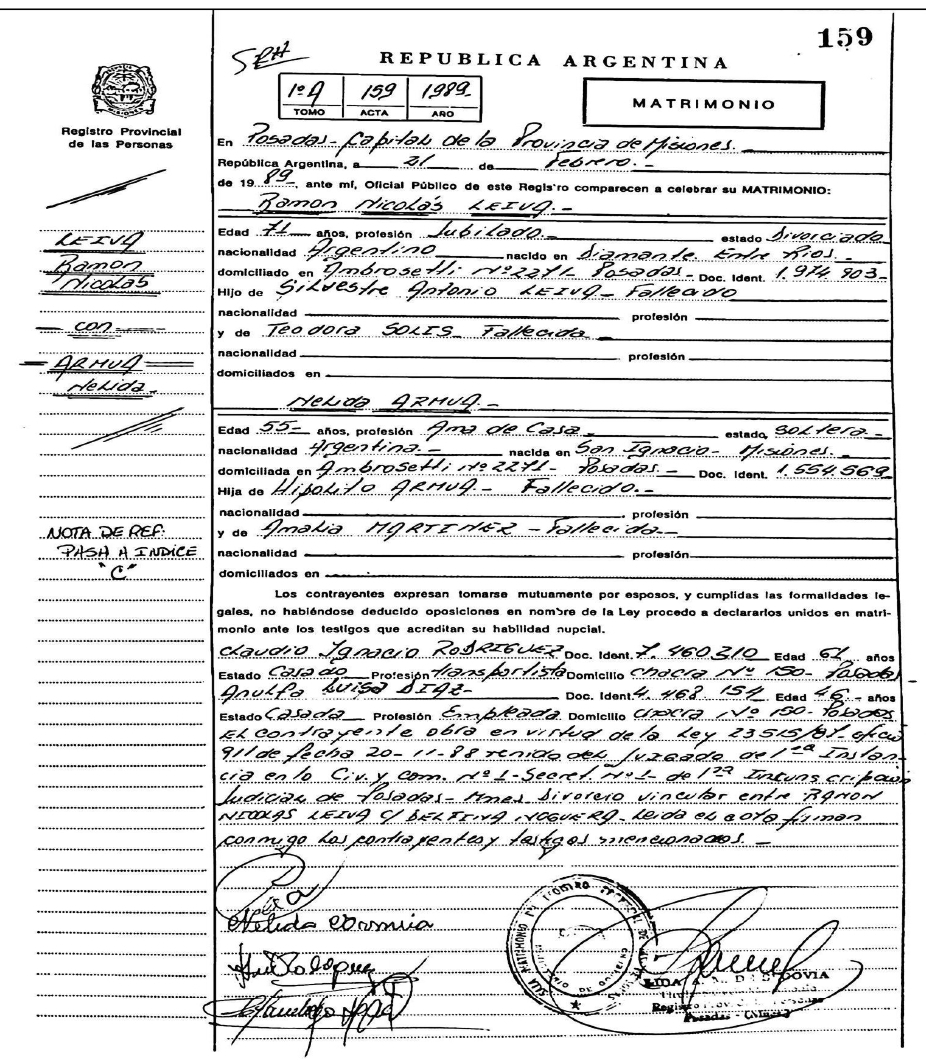 159
SRH
REPUBLICA ARGENTINA
1º A 159 1989
TOMO ACTA AÑO
MATRIMONIO
Registro Provincial
de las Personas
En Posadas - Capital de la Provincia de Misiones. -
República Argentina, a 21 de Febrero. -
de 19 89 -, ante mí, Oficial Público de este Registro comparecen a celebrar su MATRIMONIO:
Ramon Nicolás LEIVA. -
Edad 71 años, profesión Jubilado. - estado Divorciado
nacionalidad Argentino nacido en Diamante Entre Rios. -
domiciliado en Ambrosetti Nº 2271 Posadas - Doc. Ident. 1.974.903 -
Hijo de Silvestre Antonio LEIVA - Fallecido
nacionalidad profesión
y de Teodora SOLIS Fallecida
nacionalidad profesión
domiciliados en
Nelida ARMUA. -
Edad 55 - años, profesión Ama de Casa - estado, Soltera. -
nacionalidad Argentina. - nacida en San Ignacio - Misiones. -
domiciliada en Ambrosetti Nº 2271 - Posadas. - Doc. Ident. 1.554.569
Hija de Hipolito ARMUA - Fallecido. -
nacionalidad profesión
y de Amalia MARTINEZ - Fallecida. -
nacionalidad profesión
domiciliados en
Los contrayentes expresan tomarse mutuamente por esposos, y cumplidas las formalidades le-
gales, no habiéndose deducido oposiciones en nombre de la Ley procedo a declararlos unidos en matri-
monio ante los testigos que acreditan su habilidad nupcial.
Claudio Ignacio RODRIGUEZ Doc. Ident. 7.460310 Edad 61 años
Estado Casado Profesión transportista Domicilio Chacra Nº 150 - Posadas
Luisa DIAZ - Doc. Ident 4.468 154 Edad 46 - años
Estado Casada Profesión Empleada Domicilio Chacra Nº 150 - Posadas
El contrayente obra en virtud de la Ley 23515/87 - oficio
911 de fecha 20-11-88 venido del Juzgado de 1ra Instan-
cia en lo Civ. y Com. Nº 1 - Secret. Nº 1 - de 1ra Circunscripcion
Judicial de Posadas - Mnes Divorcio vincular entre RAMON
NICOLAS LEIVA C/ DELFINA NOGUERA - Leida el acta firman
conmigo los contrayentes y testigos mencionados. -
LEIVA
Ramon
Nicolás
con
ARMUA
Nelida
NOTA DE REF:
PASA A INDICE
"C"
Nelida Armua
LIDA
Registro Prov. de las Personas
Posadas - (Mnes.)